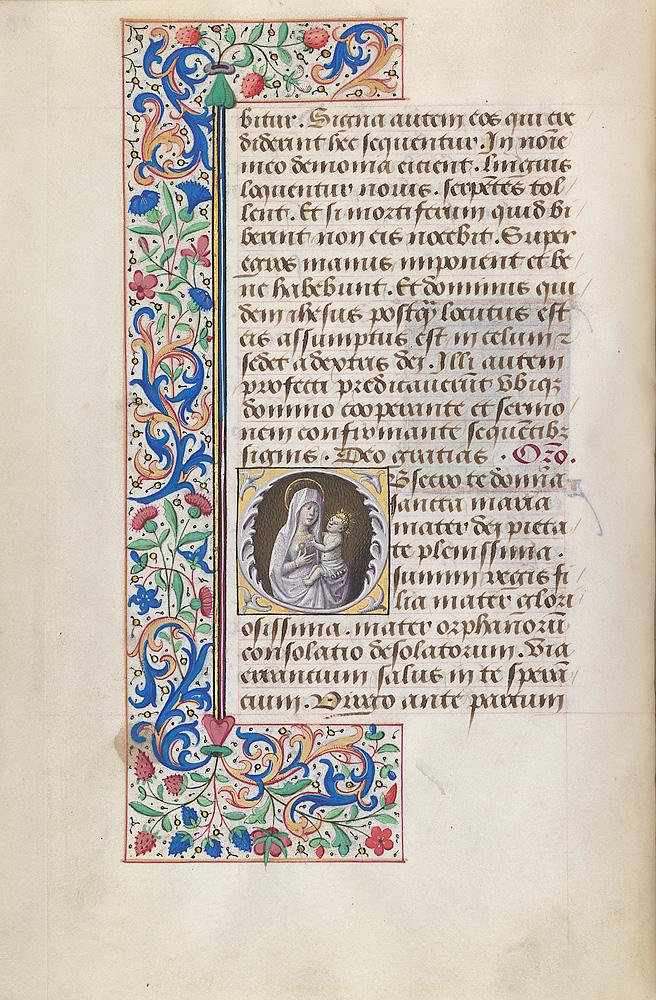 bitur. Signa autem eos qui cre
diderint hec sequentur. In noīe
meo demonia eicient. linguis
loquentur nouis. serpētes tol
lent. Et si mortiferum quid bi
berint non eis nocebit. Super
egros manus imponent et be
ne habebunt. Et dominus qui
dem ihesus postq̄ locutus est
eis assumptus est in celum ⁊
sedet a dextris dei. Illi autem
profecti predicauerūt vbiqꝫ
domino cooperante et sermo
nem confirmante sequētibꝫ
signis. Deo gratias. Orō.
Obsecro te domīa
sancta maria
mater dei pieta
te plenissima.
summi regis fi
lia mater glori
osissima. mater orphanorū
consolatio desolatorum. via
errancium salus in te sperā
cium. Virgo ante partum